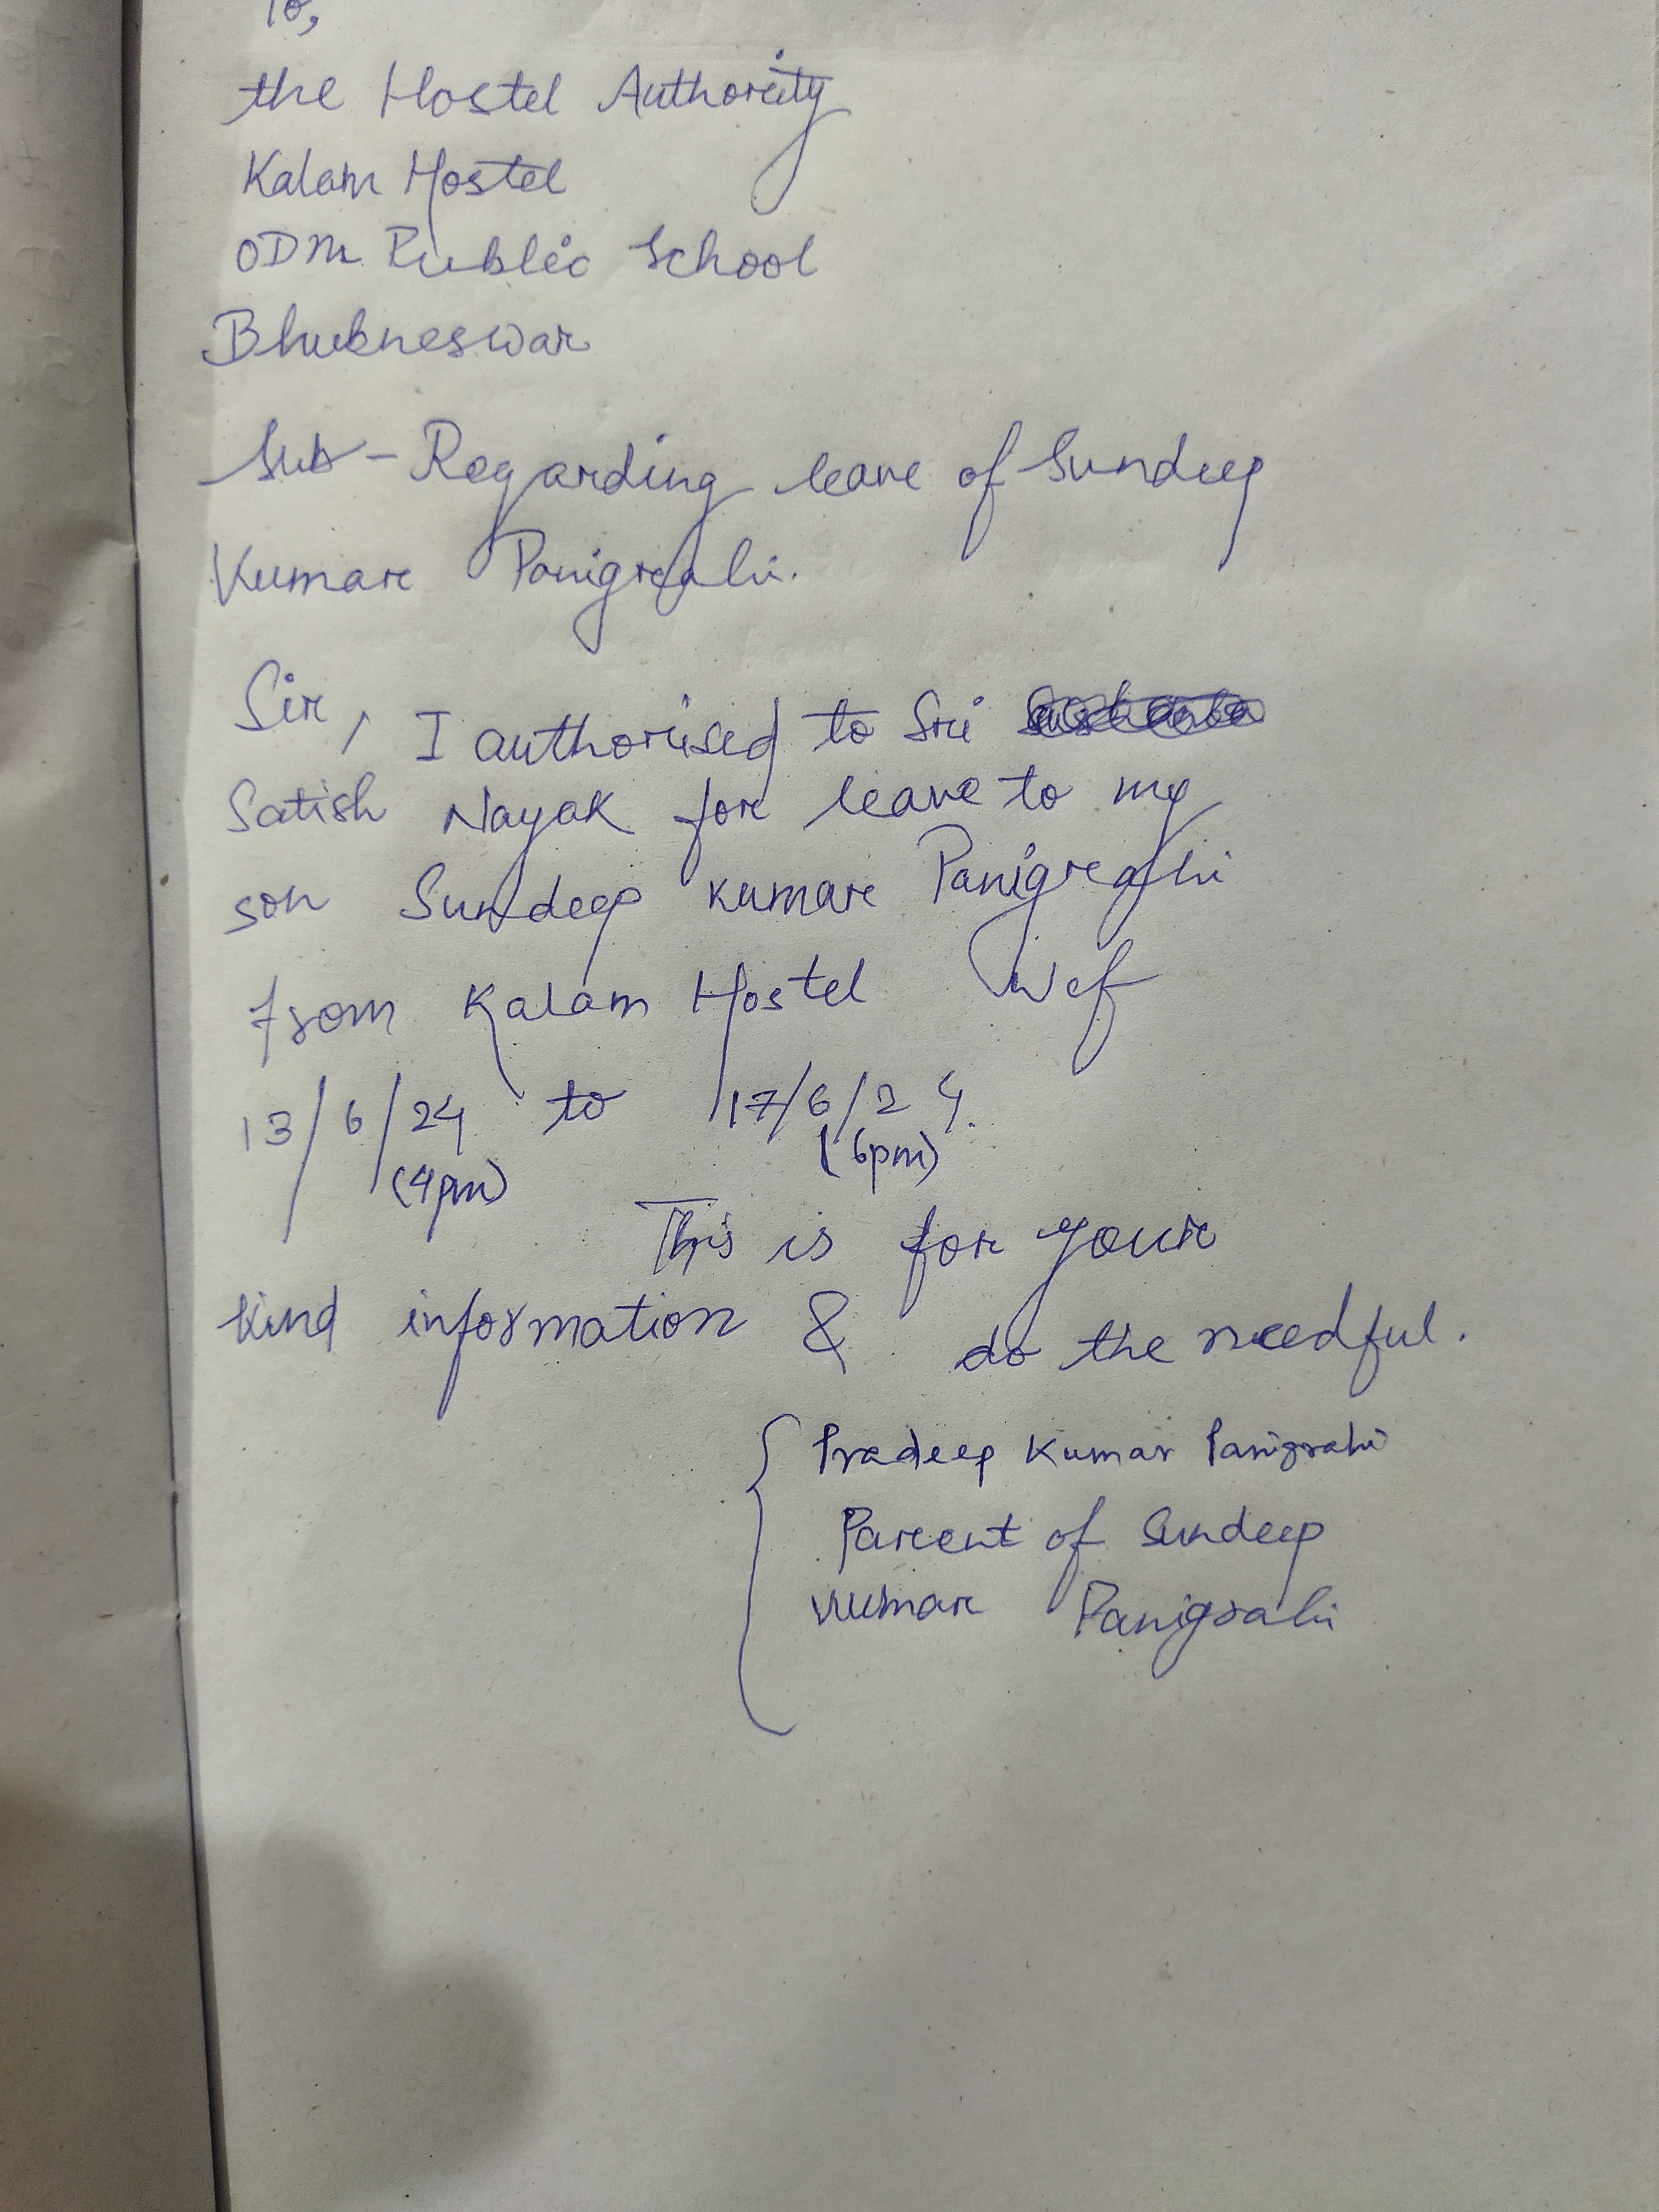 To,
the Hostel Authority
Kalam Hostel
ODM Public School
Bhubneswar
Sub - Regarding leave of Sundeep
Kumar Panigrahi.
Sir, I authorised to Sri
Satish Nayak for leave to my
son Sundeep Kumar Panigrahi
from Kalam Hostel Wef
13/6/24 to 17/6/24.
(4pm) (6pm)
This is for your
kind information & do the needful.
Pradeep Kumar Panigrahi
Parent of Sundeep
Kumar Panigrahi